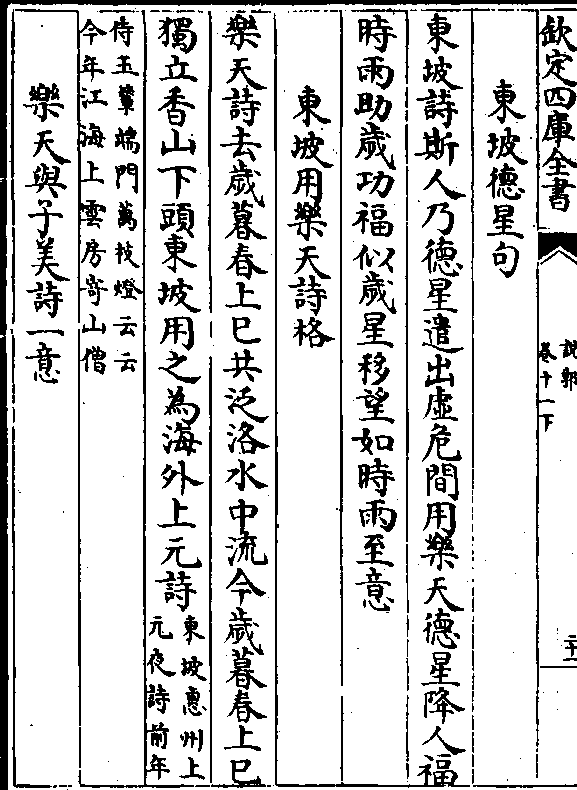 欽定四庫全書
說郛
卷十一下
東坡德星句
東坡詩斯人乃德星遣出虛危間用樂天德星降人福
時雨助歲功福似歲星移望如時雨至意
東坡用樂天詩格
樂天詩去歲暮春上巳共泛洛水中流今歲暮春上巳
獨立香山下頭東坡用之為海外上元詩
東坡惠州上
元夜詩前年
侍玉輦端門萬枝燈云云
今年江海上雲房寄山僧
樂天與子美詩一意